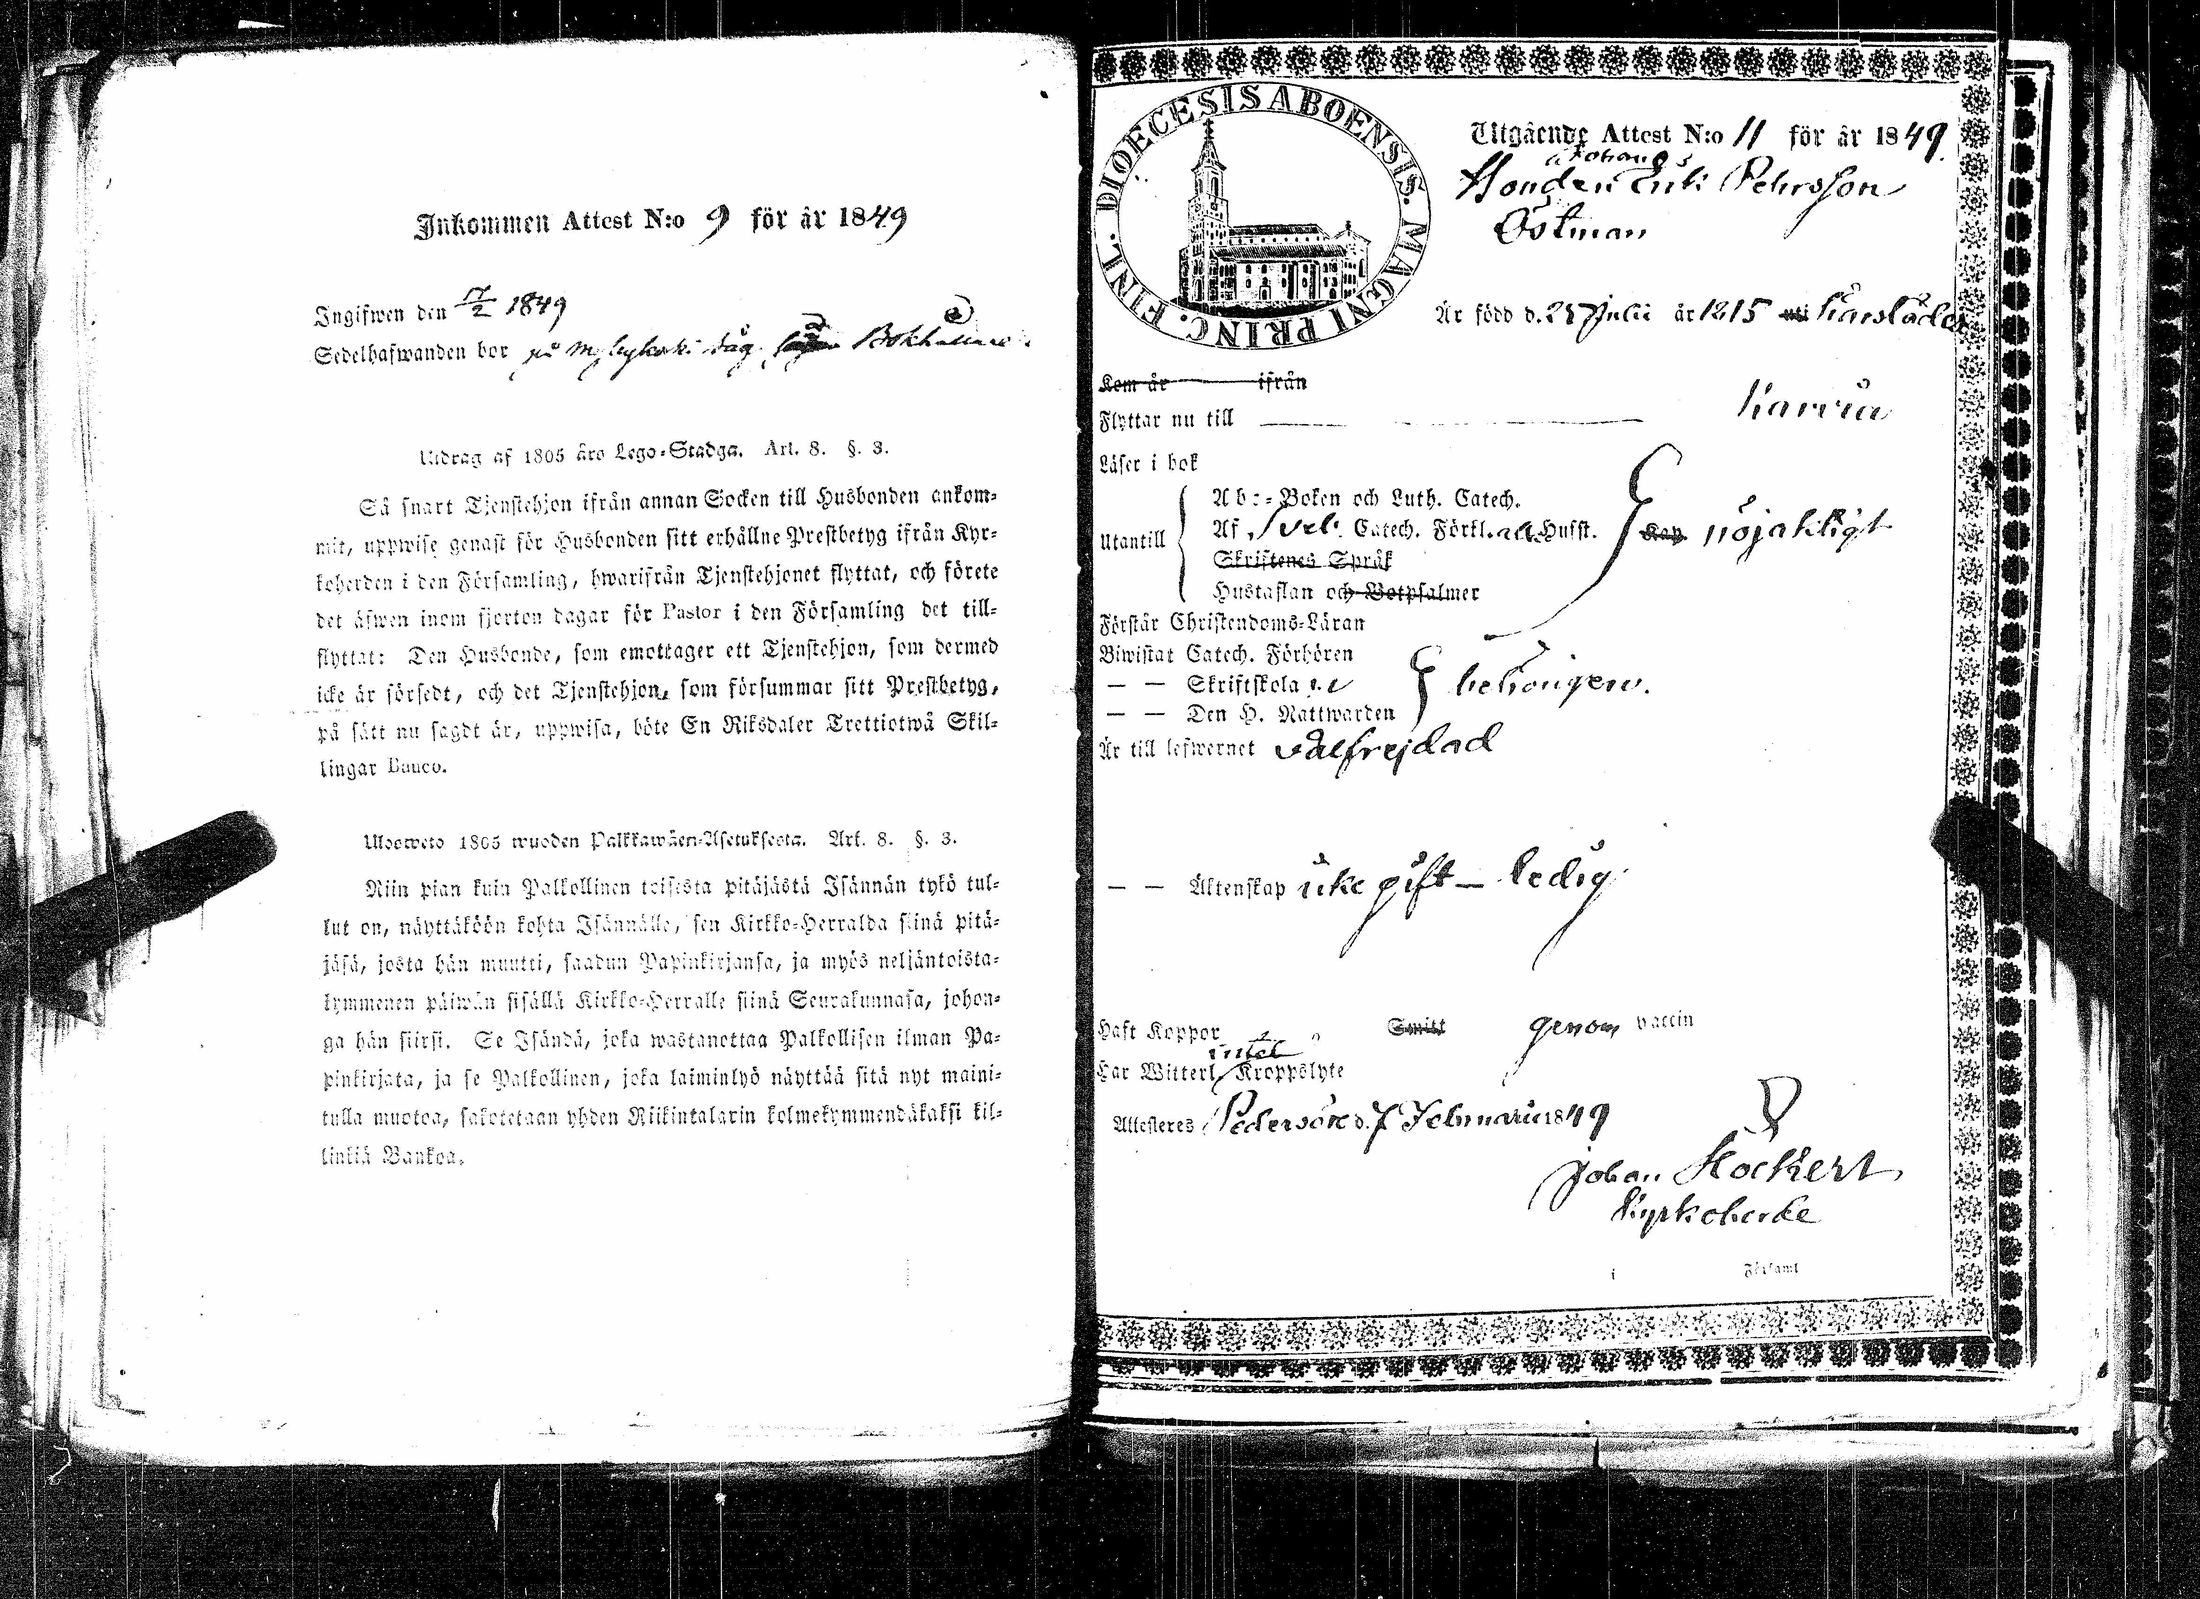 Inkommen Attest N:o 9 för år 1849
Ingifwen den 17/2 1849
Sedelhafwanden bor på
Utdrag af 1805 års Lego-Stadga. Art. 8. §. 3.
Så snart Tjenstehjon ifrån annan Socken till Husbonden ankom-
mit, uppwise genast för Husbonden sitt erhållne Prestbetyg ifrån Kyr-
koherden i den Församling, hwarifrån Tjenstehjonet flyttat, och förete
det äfwen inom fjorton dagar för Pastor i den Församling det till-
flyttat: Den Husbonde, som emottager ett Tjenstehjon, som dermed
icke är försedt, och det Tjenstehjon, som försummar sitt Prestbetyg,
på sätt nu sagdt är, uppwisa, böte En Riksdaler Trettiotwå Skil-
lingar Banco.
Ulosweto 1805 wuoden Palkkawäen-Asetuksesta. Art. 8. §. 3.
Niin pian kuin Palkollinen toisesta pitäjästä Isännän tykö tul-
lut on, näyttäköön kohta Isännälle, sen Kirkko-Herralda siinä pitä-
jäsä, josta hän muutti, saadun Papinkirjansa, ja myös neljäntoista-
kymmenen päiwän sisällä Kirkko-Herralle siinä Seurakunnasa, johon-
ga hän siirsi. Se Isändä, joka wastanottaa Palkollisen ilman Pa-
pinkirjata, ja se Palkollinen, joka laiminlyö näyttää sitä nyt maini-
tulla muotoa, sakotetaan yhden Riikintalarin kolmekymmendäkaksi kil-
linkiä Bankoa.
DIOECESIS ABOENSIS. MAGNI PRINC. FINL.
Utgående Attest N:o 11 för år 1849.
Johans
Bonden Erik Pehrsson
Östman
Är född d. 25 Julii år 1815
Kom år ifrån
Flyttar nu till
Läser i bok
Utantill
Ab:-Boken och Luth. Catech.
Af Sveb. Catech. Förkl. Husst. Kap. nöjaktigt
Skriftenes Språk
Hustaflan och Botpsalmer
Förstår Christendoms-Läran
Biwistat Catech. Förhören
— — Skriftskola
— — Den H. Nattwarden behörigen.
Är till lefwernet välfrejdad
— — Äktenskap icke gift — ledig
Haft Koppor Smitt genom vaccin
intet
Har Witterl. Kroppslyte
Attesteras Pedersöre d. 7 Februarii 1849
Johan Hockert
Kyrkoherde
i Församl